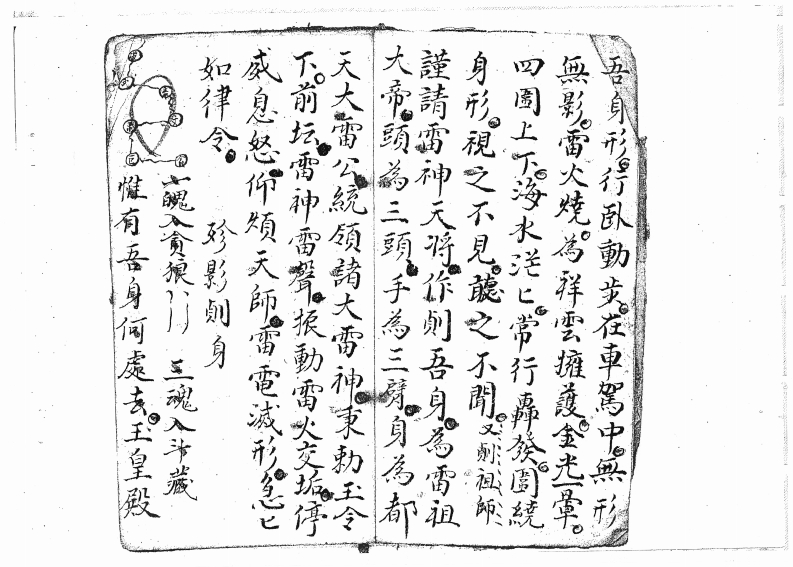 吾身形行卧動步在車駕中無形
無影雷火燒為祥雲擁護金光一暈
四圍上下海水茫匕常行轟發圍繞
身形視之不見聽之不聞又刱祖師
謹請雷神天将作刱吾身為雷祖
大帝頭為三頭手為三臂身為都
天大雷公統領諸大雷神秉勅玉令
下前坛雷神雷聲振動雷火交垢停
威息怒仰煩天師雷電滅形急匕
如律令
影刱身
七魄入貪狼 三魂入斗藏
惟有吾身何處去玉皇殿